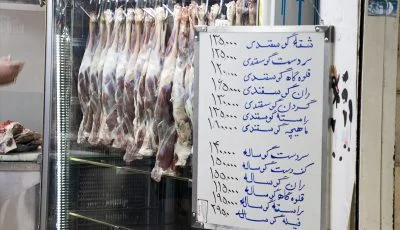 شقه گوسفندی ۱۳۵۰۰۰
سردست گوسفندی ۱۲۵۰۰۰
قلوه گاه گوسفندی ۱۲۰۰۰۰
ران گوسفندی
گردن گوسفندی ۱۳۰۰۰۰
راسته گوسفندی
ماهیچه گوسفندی
سردست گوساله ۱۴۰۰۰۰
دست گوساله ۱۵۰۰۰۰
ران گوساله ۱۵۵۰۰۰
قلوه گاه گوساله ۱۱۵۰۰۰
راسته گوساله ۱۹۵۰۰۰
فیله گوساله